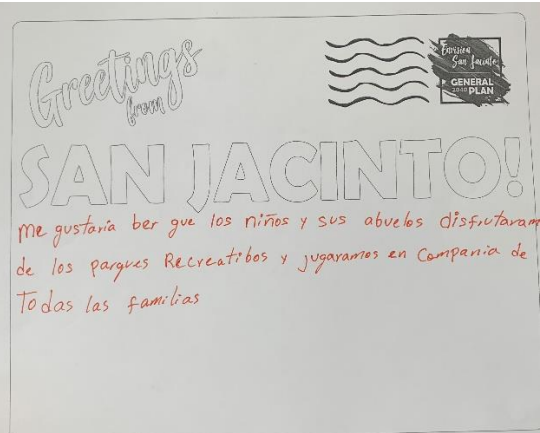 Greetings
from
Envision
San Jacinto
GENERAL
2040 PLAN
SAN JACINTO!
Me gustaria ber que los niños y sus abuelos disfrutaram
de los parques Recreatibos y jugaramos en Compania de
Todas las familias